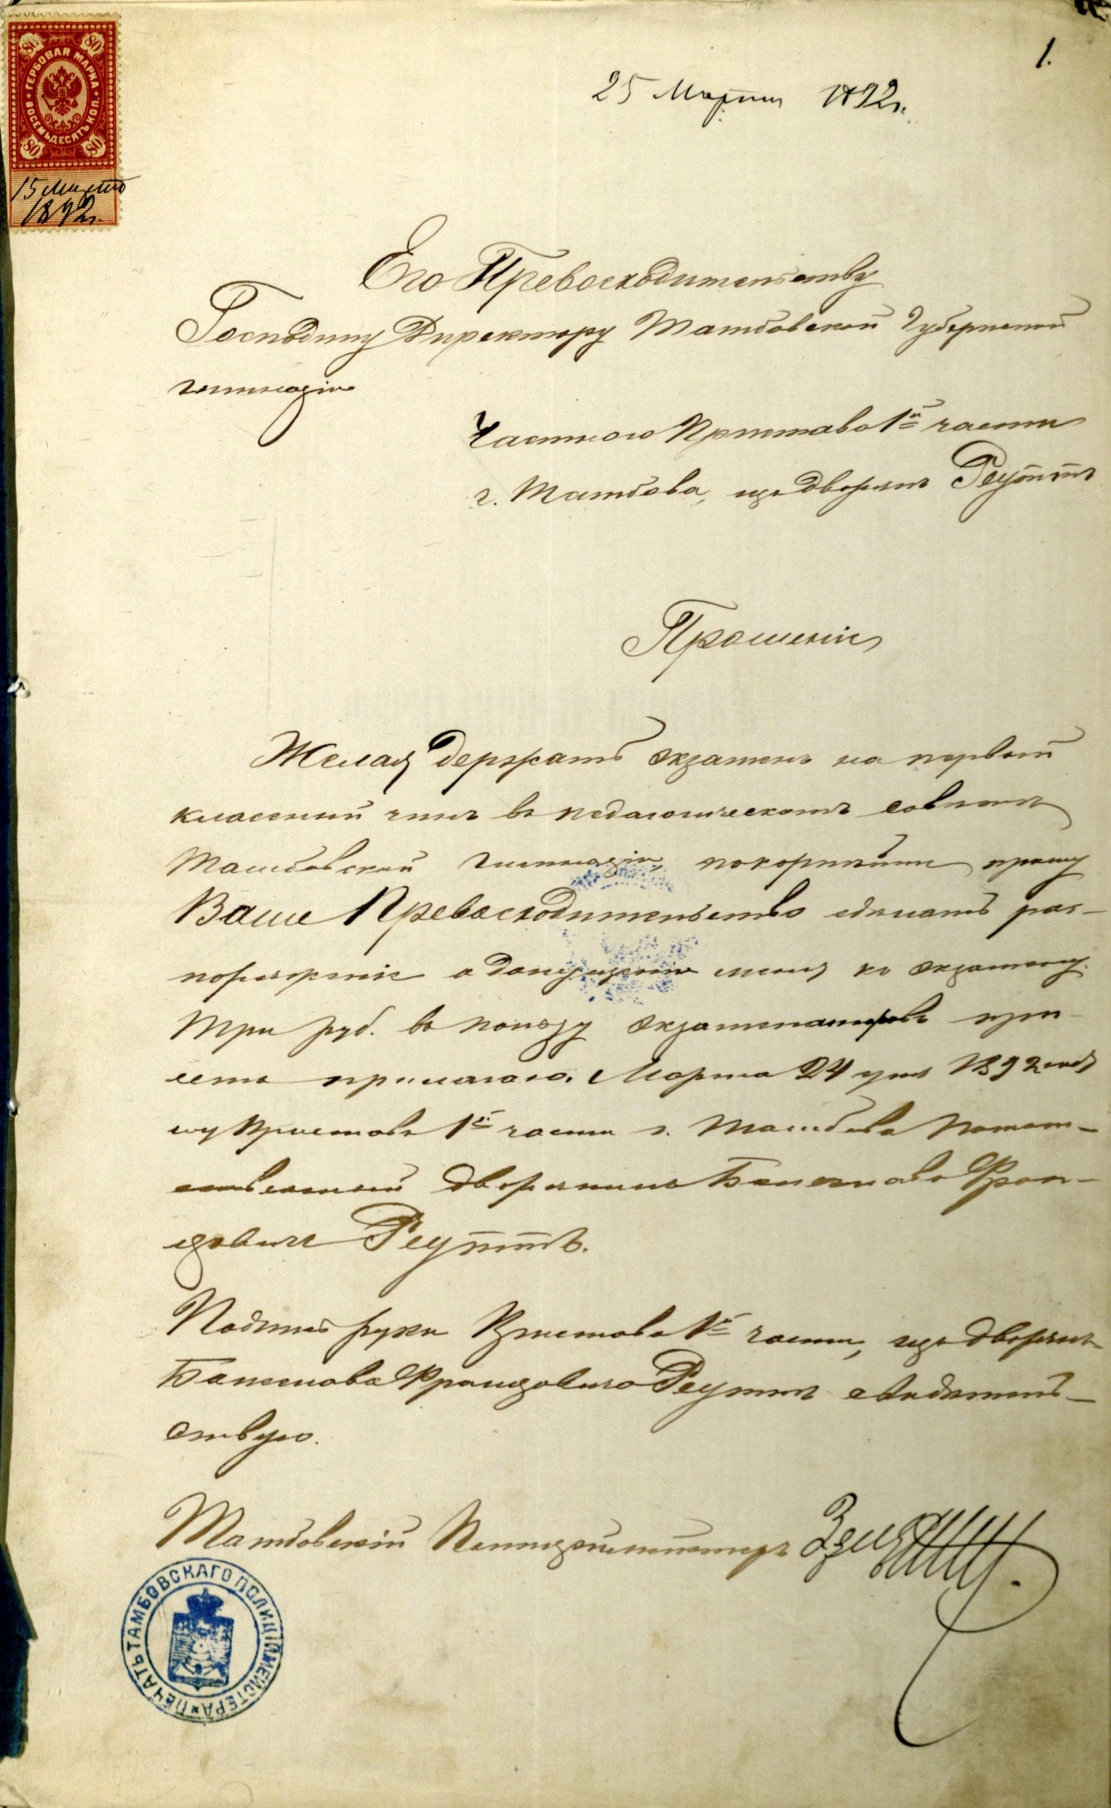 1.
25 Марта 1892 г.
ГЕРБОВАЯ МАРКА
ВОСЕМЬДЕСЯТЪ КОП.
80 80 80 80
15 Марта
1892 г.
Его Превосходительству
Господину Директору Тамбовской Губернской
гимназіи
Частнаго Пристава 1й части
г. Тамбова, изъ дворянъ Реуттъ
Прошеніе
Желая держать экзаменъ на первый
классный чинъ въ педагогическомъ совѣтѣ
Тамбовской гимназіи, покорнѣйше прошу
Ваше Превосходительство сдѣлать рас-
поряженіе о допущеніи меня къ экзамену.
Три руб. въ пользу экзаменаторовъ при
семъ прилагаю. Марта 24 дня 1892 года
Приставъ 1й части г. Тамбова Потом-
ственный дворянинъ Францовичъ
Реуттъ.
Подпись руки Пристава 1й части, изъ дворянъ
Францовича Реуттъ свидѣтель-
ствую.
Тамбовскій Полиціймейстеръ
ПЕЧАТЬ ТАМБОВСКАГО ПОЛИЦІЙМЕЙСТЕРА